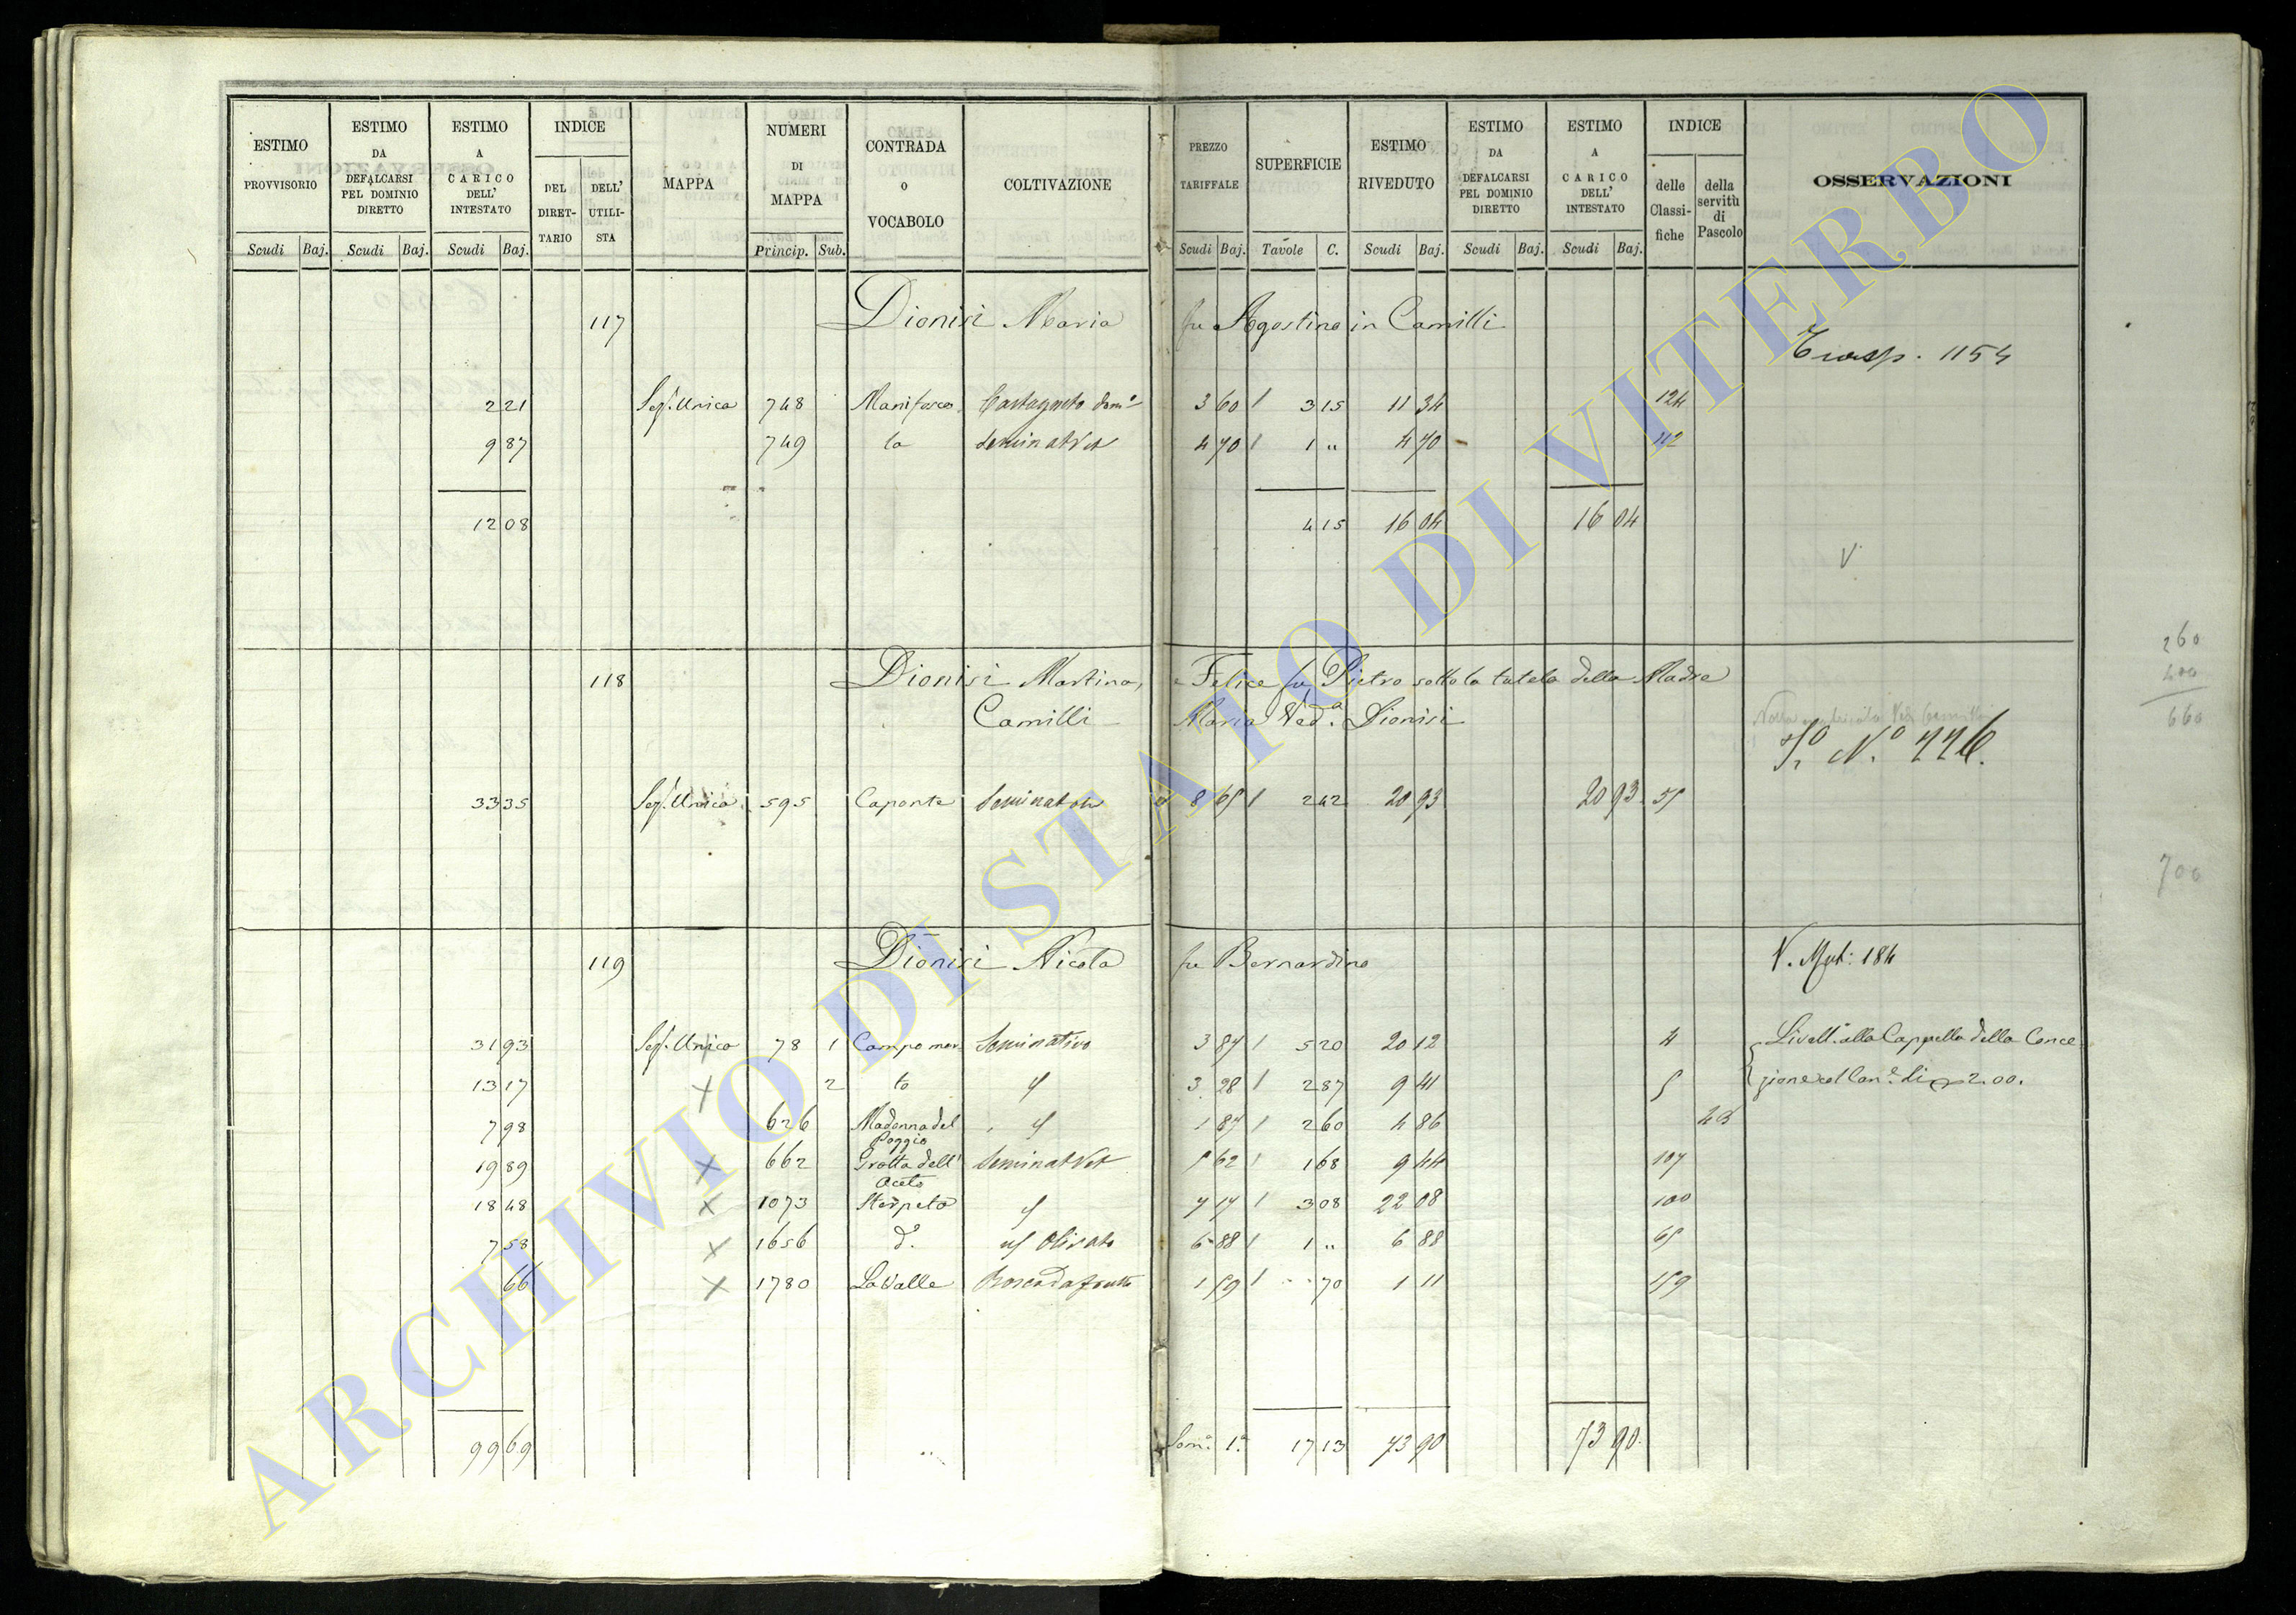 ESTIMO PROVVISORIO ESTIMO DA DEFALCARSI PEL DOMINIO DIRETTO ESTIMO A CARICO DELL' INTESTATO INDICE DEL DIRETTARIO DELL' UTILISTA MAPPA NUMERI DI MAPPA CONTRADA O VOCABOLO COLTIVAZIONE PREZZO TARIFFALE SUPERFICIE ESTIMO RIVEDUTO ESTIMO DA DEFALCARSI PEL DOMINIO DIRETTO ESTIMO A CARICO DELL' INTESTATO INDICE delle Classifiche della servitù di Pascolo OSSERVAZIONI
Scudi Baj. Scudi Baj. Scudi Baj. Princip. Sub. Scudi Baj. Tavole C. Scudi Baj. Scudi Baj. Scudi Baj.
117 Dionisi Maria fu Agostino in Camilli
Trasp. 1154
2 21 Sez. Unica 748 Castagneto dom. 3 60 3 15 11 34 124
9 87 749 la Seminat Vit 4 70 1 " 4 70 112
12 08 4 15 16 04 16 04
V
260
400
660
118 Dionisi Martino, e Felice fu Pietro sotto la tutela della Madre
Camilli Maria Ved.a Dionisi
N.o 226.
33 35 Sez. Unica 595 Caponte 8 65 2 42 20 93 20 93 55
700
119 Dionisi Nicola fu Bernardino
V. Mut: 184
31 93 Sez. Unica 78 1 Campo mor Seminativo 3 87 5 20 20 12 4 Livell. alla Cappella della Conce
13 17 2 to 3 28 2 87 9 41 5 zione col Can.e di 2.00.
7 98 626 Madonna del Poggio 1 87 2 60 4 86
19 89 662 Grotta dell' Aceto Seminat Vit 5 62 1 68 9 44 107
18 48 1073 Sterpeto 7 17 3 08 22 08 100
7 58 1656 d.o Olivato 6 88 1 " 6 88 65
66 1780 La Valle Bosco da frutto 1 59 70 1 11 159
99 69 Som. 1.a 17 13 73 90 73 90
ARCHIVIO DI STATO DI VITERBO